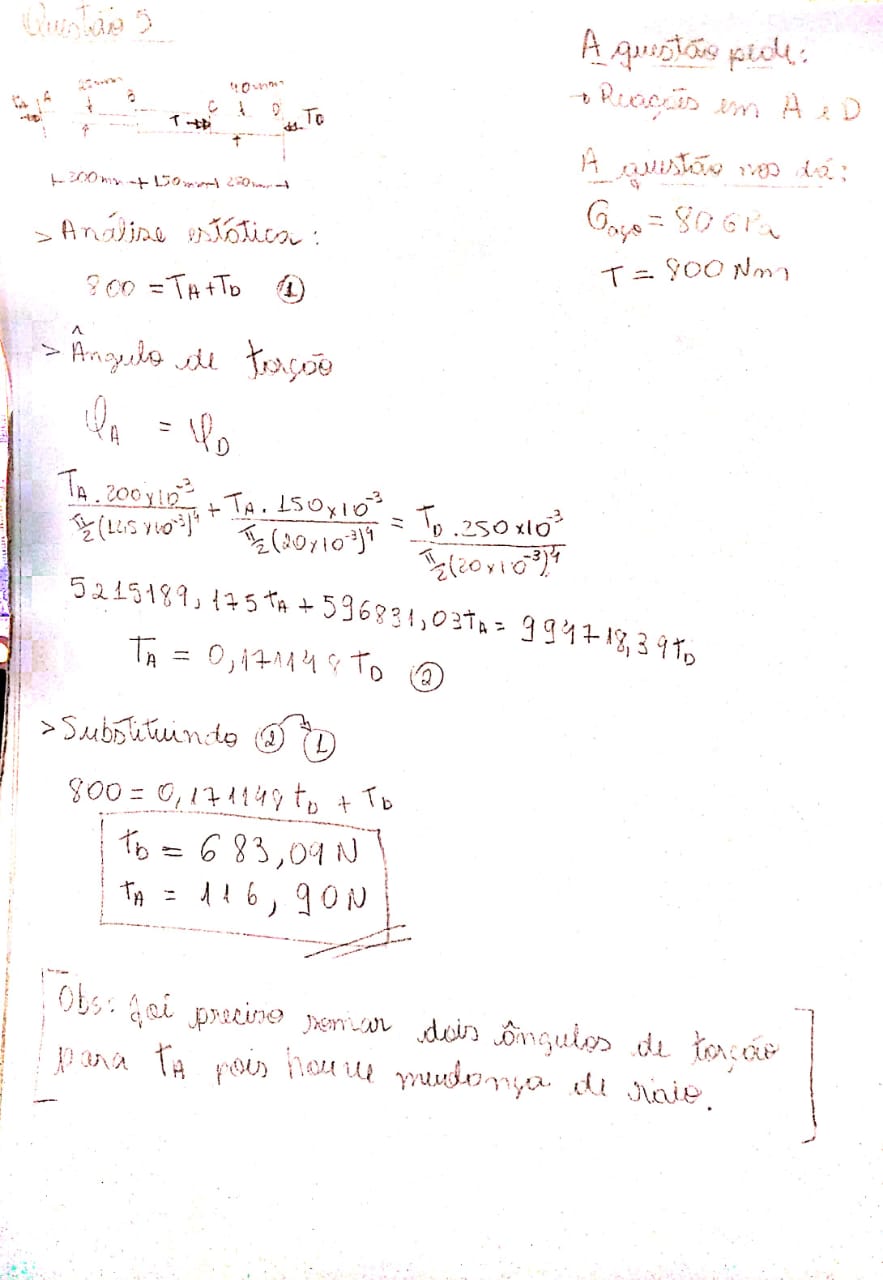 Questão 5
A questão pede:
→ Reações em A e D
A questão nos dá:
Gaço = 80 GPa
T = 800 Nm
TA A 25mm B T C 40mm D TD
200mm 150mm 250mm
> Análise estática:
800 = TA + TD ①
> Ângulo de torção
φA = φD
TA . 200x10^-3 / π/2 (12,5x10^-3)^4 + TA . 150x10^-3 / π/2 (20x10^-3)^4 = TD . 250x10^-3 / π/2 (20x10^-3)^4
5215189,175 TA + 596831,03 TA = 994718,39 TD
TA = 0,171148 TD ②
> Substituindo ② ①
800 = 0,171148 TD + TD
TD = 683,09 N
TA = 116,90 N
Obs: foi preciso somar dois ângulos de torção
para TA pois houve mudança de raio.